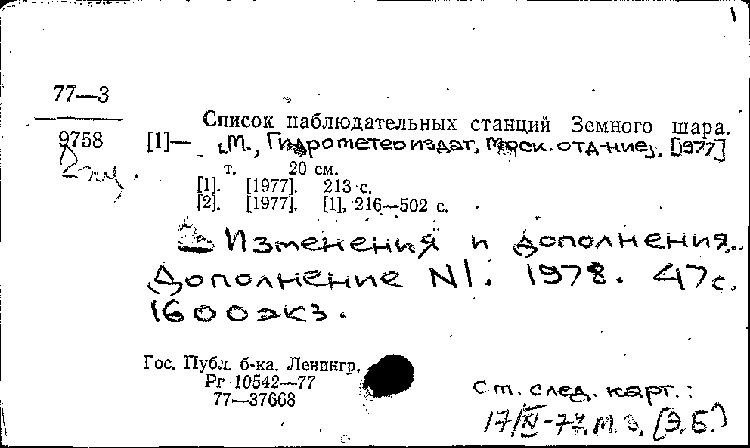 1
77—3
9758
2 экз.
Список наблюдательных станций Земного шара.
[1]— М., Гидрометеоиздат, Моск. отд-ние, [1977]
т. 20 см.
[1]. [1977]. 213 с.
[2]. [1977]. [1], 216—502 с.
Изменения и дополнения.
Дополнение N1. 1978. 47 с.
1600 экз.
Гос. Публ. б-ка. Ленингр.
Рг 10542—77
77—37668
См. след. карт.:
17/XI-77. М. З. [Э.Б.]